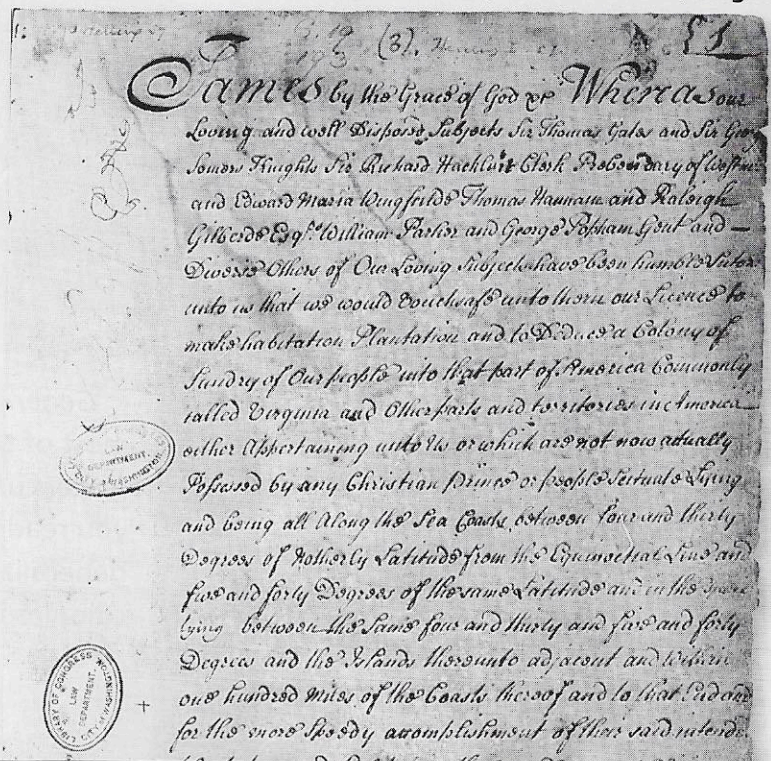 (3)
James by the Grace of God &c Whereas our
Loving and well Disposed Subjects Sir Thomas Gates and Sir Geo
Somers Knights Sir Richard Hackluit Clerk Prebendary of Westm
and Edward Maria Wingfeilde Thomas Hannam and Raleigh
Gilberde Esqrs. William Parker and George Popham Gent and —
Diverse Others of Our Loving Subjects have been humble Sutor
unto us that we would vouchsafe unto them our Licence to
make habitation Plantation and to Deduce a Colony of
Sundry of Our people into that part of America Commonly
called Virginia and Other parts and territories in America
either Appertaining unto Us or which are not now actually
Possessed by any Christian Prince or people Scituate Lying
and being all Along the Sea Coasts between four and thirty
Degrees of Notherly Latitude from the Equinoctial Line and
five and forty Degrees of the same Latitude and in the
lying between the Same four and thirty and five and forty
Degrees and the Islands thereunto adjacent and within
one hundred Miles of the Coasts thereof and to that End and
for the more Speedy accomplishment of their said intende
LAW
DEPARTMENT.
LIBRARY OF CONGRESS
LAW
DEPARTMENT.
CITY OF WASHINGTON